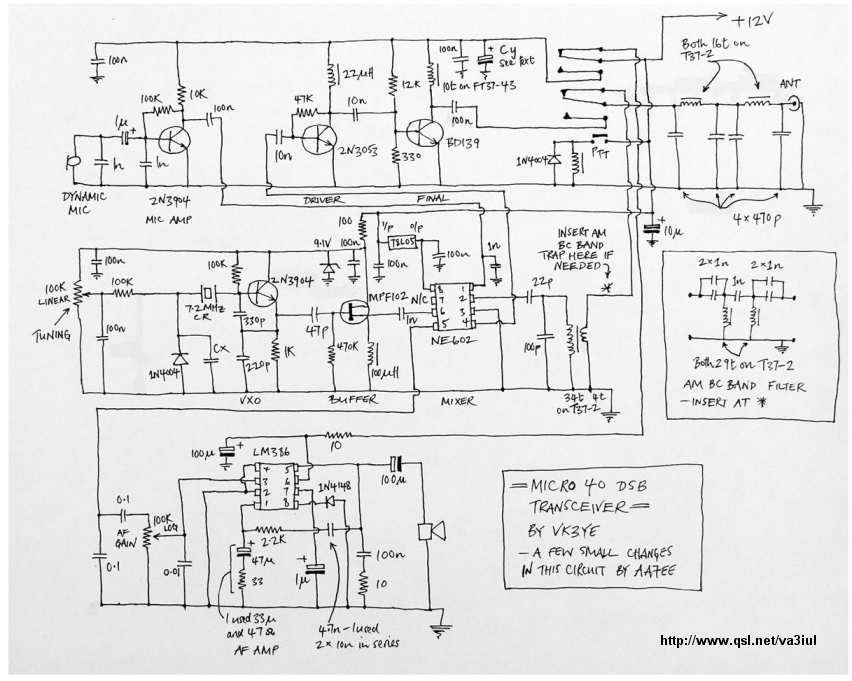 +12V
Both 16t on
T37-2
ANT
100n
10K
100K
100n
1μ
+
1n
1n
DYNAMIC
MIC
2N3904
MIC AMP
22μH
47K
10n
10n
2N3053
DRIVER
12K
330
100n
+
Cy
see text
10t on FT37-43
100n
BD139
FINAL
1N4004
PTT
4x470p
+
10μ
100K
LINEAR
TUNING
100n
100K
100n
7.2MHz
CR
1N4004
Cx
100K
2N3904
330p
220p
1K
VXO
47p
9.1V
100
100n
470K
100μH
MPF102
BUFFER
I/P
O/P
78L05
100n
100n
1n
1n
N/C
8
7
6
5
1
2
3
4
NE602
MIXER
22p
100p
INSERT AM
BC BAND
TRAP HERE IF
NEEDED
*
34t
4t
on T37-2
2x1n
2x1n
1n
Both 29t on T37-2
AM BC BAND FILTER
- INSERT AT *
100μ
+
LM386
4
3
2
1
5
6
7
8
10
1N4148
+
100μ
0.1
0.1
AF
GAIN
100K
LOG
0.01
2.2K
+
47μ
33
+
1μ
100n
10
1 used 33μ
and 47Ω
AF AMP
4.7n - I used
2 x 10n in series
= MICRO 40 DSB
TRANSCEIVER =
BY VK3YE
- A FEW SMALL CHANGES
IN THIS CIRCUIT BY AA7EE
http://www.qsl.net/va3iul